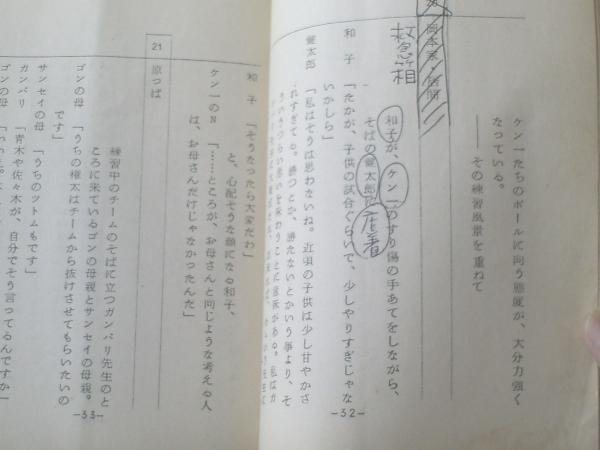 ケン一たちのボールに向う態度が、大分力強く
なっている。
――その練習風景を重ねて
岡本家・居間
救急箱
和子が、ケン一のすり傷の手あてをしながら、
そばの健太郎に
座着
和子 「たかが、子供の試合ぐらいで、少しやりすぎじゃな
いかしら」
健太郎 「私はそうは思わないね。近頃の子供は少し甘やかさ
れすぎてる。勝つとか、勝たないとかいう事より、そ
和子 「そうなったら大変だわ」
と、心配そうな顔になる和子、
ケン一のN 「……ところが、お母さんと同じような考える人
は、お母さんだけじゃなかったんだ」
21 原っぱ
練習中のチームのそばに立つガンバリ先生のと
ころに来ているゴンの母親とサンセイの母親。
ゴンの母 「うちの権太はチームから抜けさせてもらいたいの
です」
サンセイの母 「うちのツトムもです」
ガンバリ 「青木や佐々木が、自分でそう言ってるんですか」
ゴンの母
-32-
-33-